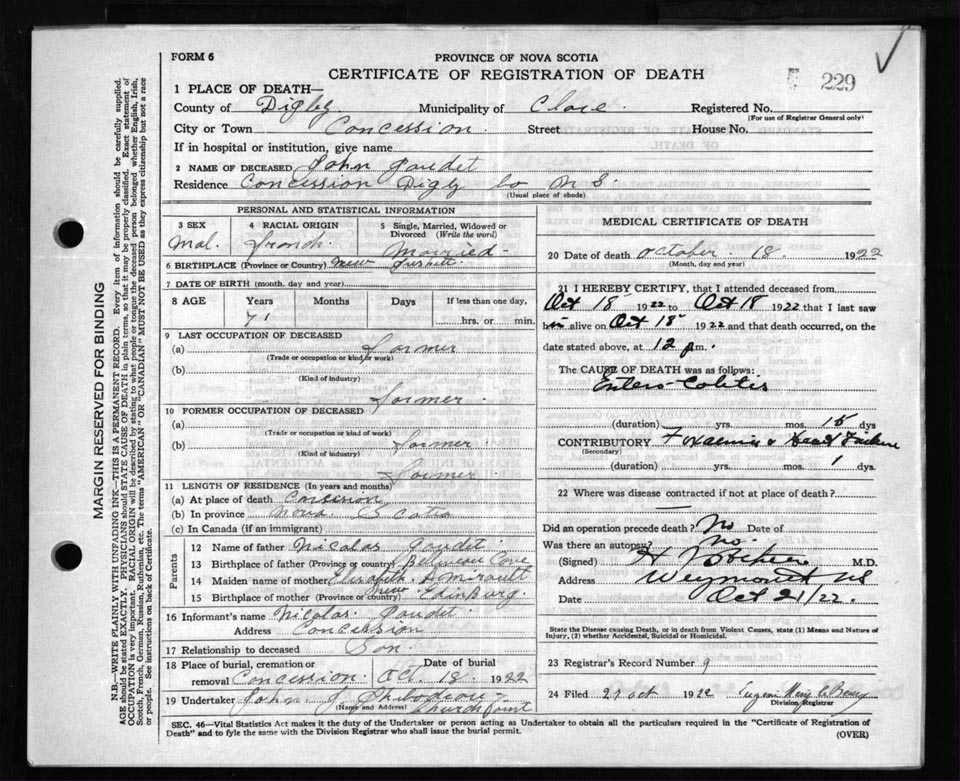 FORM 6
PROVINCE OF NOVA SCOTIA
CERTIFICATE OF REGISTRATION OF DEATH
229
1 PLACE OF DEATH—
County of Digby Municipality of Clare Registered No.
(For use of Registrar General only)
City or Town Concession Street House No.
If in hospital or institution, give name
2 NAME OF DECEASED John Gaudet
Residence Concession Digby Co N S.
(Usual place of abode)
PERSONAL AND STATISTICAL INFORMATION
3 SEX 4 RACIAL ORIGIN 5 Single, Married, Widowed or Divorced (Write the word)
Mal. French Married
6 BIRTHPLACE (Province or Country) New
7 DATE OF BIRTH (month, day and year)
8 AGE Years Months Days If less than one day,
71 hrs. or min.
9 LAST OCCUPATION OF DECEASED
(a) Farmer
(Trade or occupation or kind of work)
(b)
(Kind of industry)
Farmer
10 FORMER OCCUPATION OF DECEASED
(a)
(Trade or occupation or kind of work)
(b) Farmer
(Kind of industry)
Farmer
11 LENGTH OF RESIDENCE (In years and months)
(a) At place of death Concession
(b) In province Nova Scotia
(c) In Canada (if an immigrant)
Parents
12 Name of father Nicolas Gaudet
13 Birthplace of father (Province or country) Beliveau Cove
14 Maiden name of mother Elisabeth Amirault
15 Birthplace of mother (Province or country) New Edinburg
16 Informant's name Nicolas Gaudet
Address Concession
17 Relationship to deceased Son
18 Place of burial, cremation or removal Concession Date of burial Oct. 18. 1922
19 Undertaker John J. Thibodeau
(Name and Address) Church Point
MEDICAL CERTIFICATE OF DEATH
20 Date of death October 18. 1922
(Month, day and year)
21 I HEREBY CERTIFY, that I attended deceased from
Oct 18 1922 to Oct 18 1922 that I last saw
him alive on Oct 18 1922 and that death occurred, on the
date stated above, at 12 p m.
The CAUSE OF DEATH was as follows:
Entero-Colitis
(duration) yrs. mos. 15 dys.
CONTRIBUTORY Toxaemia & Heart Failure
(Secondary)
(duration) yrs. mos. 1 dys.
22 Where was disease contracted if not at place of death?
Did an operation precede death? No Date of
Was there an autopsy? No.
(Signed) H M.D.
Address Weymouth NS
Date Oct 21/22.
State the Disease causing Death, or in death from Violent Causes, state (1) Means and Nature of
Injury, (2) whether Accidental, Suicidal or Homicidal.
23 Registrar's Record Number 9
24 Filed 21 Oct 1922 Eugene
Division Registrar
SEC. 46—Vital Statistics Act makes it the duty of the Undertaker or person acting as Undertaker to obtain all the particulars required in the "Certificate of Registration of
Death" and to fyle the same with the Division Registrar who shall issue the burial permit. (OVER)
MARGIN RESERVED FOR BINDING
N.B.—WRITE PLAINLY WITH UNFADING INK—THIS IS A PERMANENT RECORD. Every item of information should be carefully supplied.
AGE should be stated EXACTLY. PHYSICIANS should STATE CAUSE OF DEATH in plain terms, so that it may be properly classified. Exact statement of
OCCUPATION is very important. RACIAL ORIGIN will be described by stating to what people or tongue the deceased person belonged whether English, Irish,
Scotch, French, German, Russian, Ruthenian, etc. The terms "AMERICAN" or "CANADIAN" MUST NOT BE USED as they express citizenship but not a race
or people. See instructions on back of Certificate.